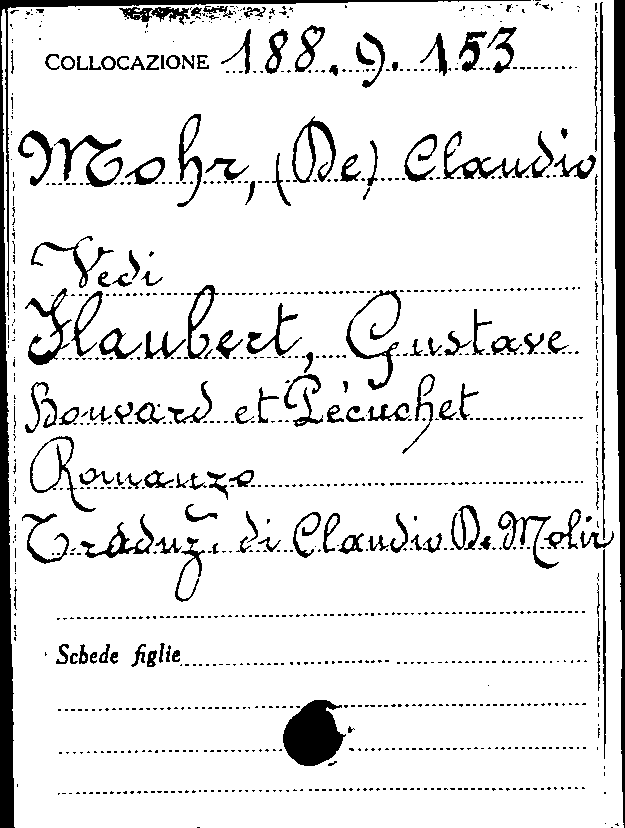 COLLOCAZIONE 188.9.153
Mohr, (De) Claudio
Vedi
Flaubert, Gustave
Bouvard et Pécuchet
Romanzo
Traduz. di Claudio De Mohr
Schede figlie